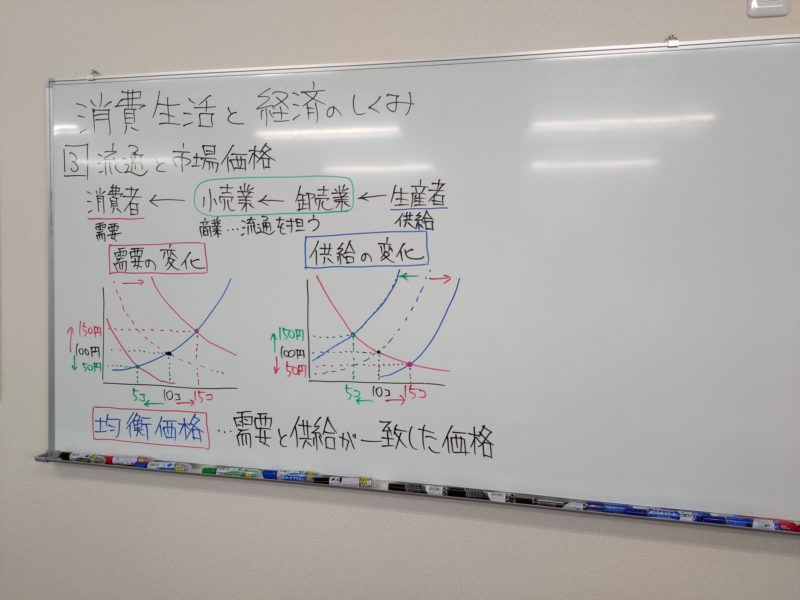 消費生活と経済のしくみ
3 流通と市場価格
消費者 ← 小売業 ← 卸売業 ← 生産者
需要 商業…流通を担う 供給
需要の変化
150円
100円
50円
5コ 10コ 15コ
供給の変化
150円
100円
50円
5コ 10コ 15コ
均衡価格 …需要と供給が一致した価格